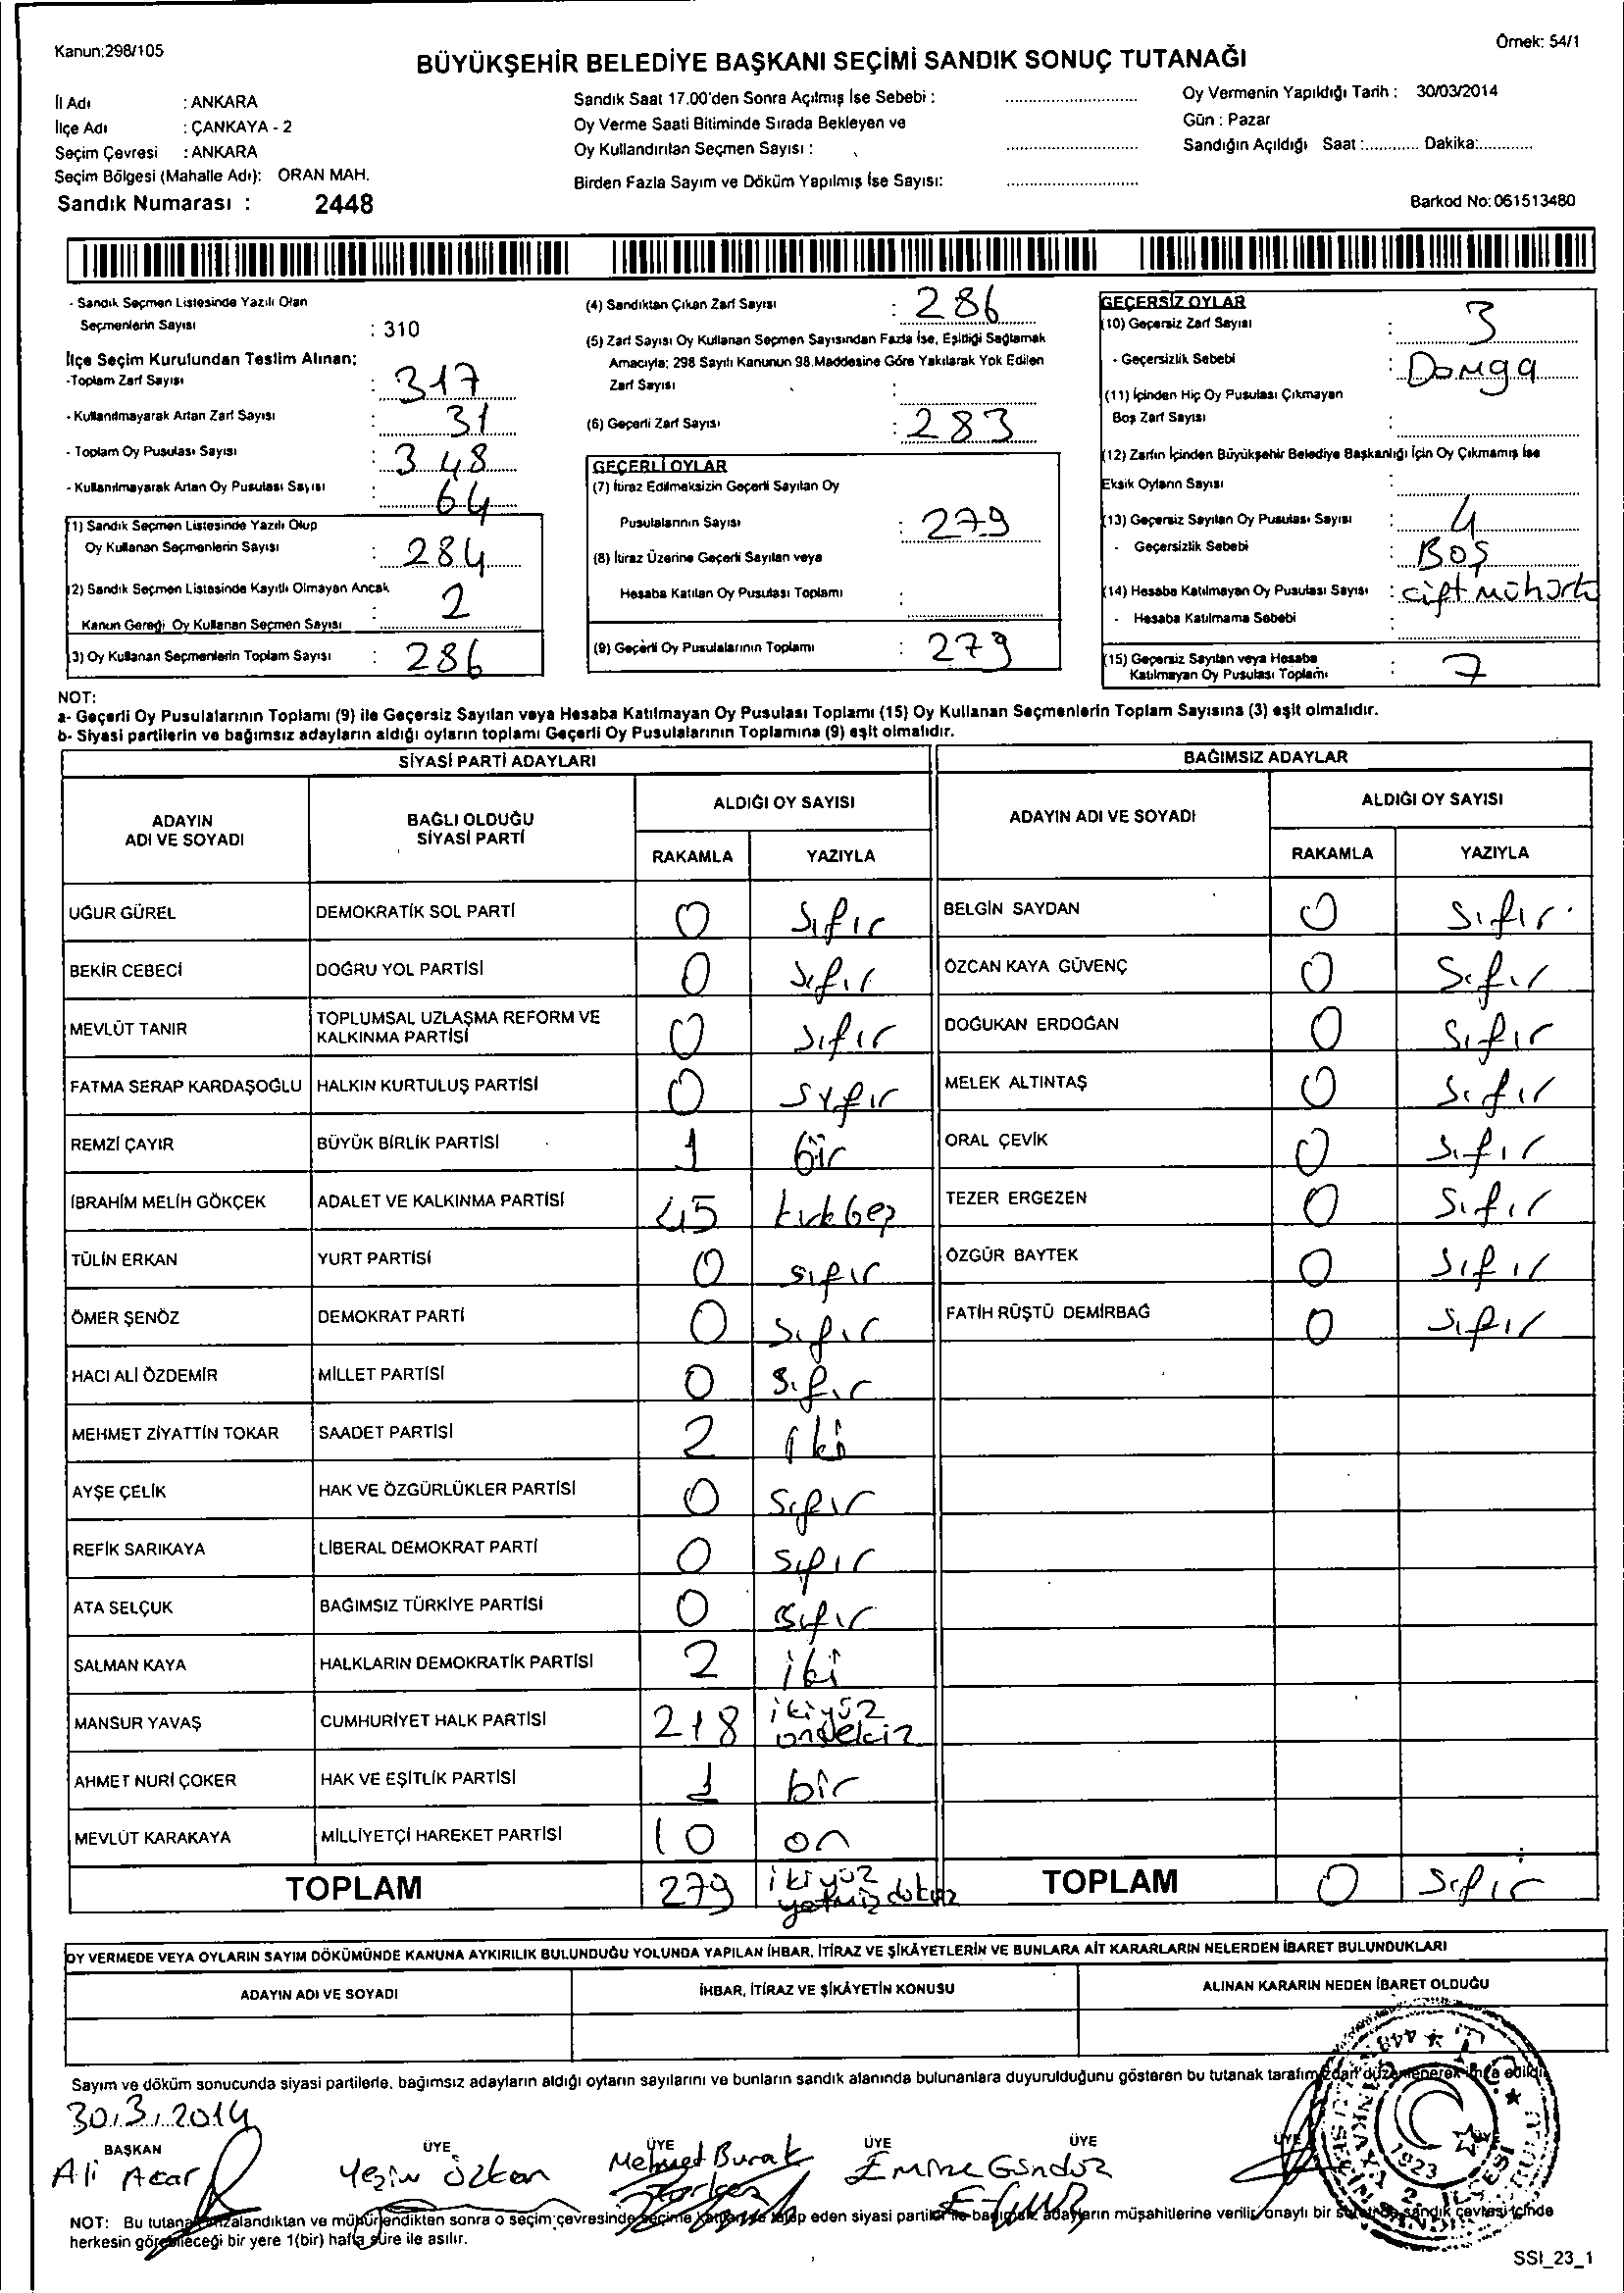 Kanun:298/105
Örnek: 54/1
BÜYÜKŞEHİR BELEDİYE BAŞKANI SEÇİMİ SANDIK SONUÇ TUTANAĞI
İl Adı : ANKARA
İlçe Adı : ÇANKAYA - 2
Seçim Çevresi : ANKARA
Seçim Bölgesi (Mahalle Adı): ORAN MAH.
Sandık Numarası : 2448
Sandık Saat 17.00'den Sonra Açılmış İse Sebebi :
Oy Verme Saati Bitiminde Sırada Bekleyen ve
Oy Kullandırılan Seçmen Sayısı :
Birden Fazla Sayım ve Döküm Yapılmış İse Sayısı:
Oy Vermenin Yapıldığı Tarih : 30/03/2014
Gün : Pazar
Sandığın Açıldığı Saat :............ Dakika:............
Barkod No: 061513480
- Sandık Seçmen Listesinde Yazılı Olan
Seçmenlerin Sayısı : 310
İlçe Seçim Kurulundan Teslim Alınan;
-Toplam Zarf Sayısı : 317
- Kullanılmayarak Artan Zarf Sayısı : 31
- Toplam Oy Pusulası Sayısı : 348
- Kullanılmayarak Artan Oy Pusulası Sayısı : 64
(1) Sandık Seçmen Listesinde Yazılı Olup
Oy Kullanan Seçmenlerin Sayısı : 284
(2) Sandık Seçmen Listesinde Kayıtlı Olmayan Ancak
Kanun Gereği Oy Kullanan Seçmen Sayısı : 2
(3) Oy Kullanan Seçmenlerin Toplam Sayısı : 286
(4) Sandıktan Çıkan Zarf Sayısı : 286
(5) Zarf Sayısı Oy Kullanan Seçmen Sayısından Fazla İse, Eşitliği Sağlamak
Amacıyla; 298 Sayılı Kanunun 98.Maddesine Göre Yakılarak Yok Edilen
Zarf Sayısı :
(6) Geçerli Zarf Sayısı : 283
GEÇERLİ OYLAR
(7) İtiraz Edilmeksizin Geçerli Sayılan Oy
Pusulalarının Sayısı : 279
(8) İtiraz Üzerine Geçerli Sayılan veya
Hesaba Katılan Oy Pusulası Toplamı :
(9) Geçerli Oy Pusulalarının Toplamı : 279
GEÇERSİZ OYLAR
(10) Geçersiz Zarf Sayısı : 3
- Geçersizlik Sebebi : Damga
(11) İçinden Hiç Oy Pusulası Çıkmayan
Boş Zarf Sayısı :
(12) Zarfın İçinden Büyükşehir Belediye Başkanlığı İçin Oy Çıkmamış İse
Eksik Oyların Sayısı :
(13) Geçersiz Sayılan Oy Pusulası Sayısı : 4
- Geçersizlik Sebebi : BOŞ
(14) Hesaba Katılmayan Oy Pusulası Sayısı : çift mühürlü
- Hesaba Katılmama Sebebi :
(15) Geçersiz Sayılan veya Hesaba
Katılmayan Oy Pusulası Toplamı : 7
NOT:
a- Geçerli Oy Pusulalarının Toplamı (9) ile Geçersiz Sayılan veya Hesaba Katılmayan Oy Pusulası Toplamı (15) Oy Kullanan Seçmenlerin Toplam Sayısına (3) eşit olmalıdır.
b- Siyasi partilerin ve bağımsız adayların aldığı oyların toplamı Geçerli Oy Pusulalarının Toplamına (9) eşit olmalıdır.
SİYASİ PARTİ ADAYLARI
BAĞIMSIZ ADAYLAR
ADAYIN
ADI VE SOYADI
BAĞLI OLDUĞU
SİYASİ PARTİ
ALDIĞI OY SAYISI
RAKAMLA YAZIYLA
ADAYIN ADI VE SOYADI
ALDIĞI OY SAYISI
RAKAMLA YAZIYLA
UĞUR GÜREL DEMOKRATİK SOL PARTİ 0 sıfır
BELGİN SAYDAN 0 sıfır
BEKİR CEBECİ DOĞRU YOL PARTİSİ 0 sıfır
ÖZCAN KAYA GÜVENÇ 0 sıfır
MEVLÜT TANIR TOPLUMSAL UZLAŞMA REFORM VE
KALKINMA PARTİSİ 0 sıfır
DOĞUKAN ERDOĞAN 0 sıfır
FATMA SERAP KARDAŞOĞLU HALKIN KURTULUŞ PARTİSİ 0 sıfır
MELEK ALTINTAŞ 0 sıfır
REMZİ ÇAYIR BÜYÜK BİRLİK PARTİSİ 1 bir
ORAL ÇEVİK 0 sıfır
İBRAHİM MELİH GÖKÇEK ADALET VE KALKINMA PARTİSİ 45 kırkbeş
TEZER ERGEZEN 0 sıfır
TÜLİN ERKAN YURT PARTİSİ 0 sıfır
ÖZGÜR BAYTEK 0 sıfır
ÖMER ŞENÖZ DEMOKRAT PARTİ 0 sıfır
FATİH RÜŞTÜ DEMİRBAĞ 0 sıfır
HACI ALİ ÖZDEMİR MİLLET PARTİSİ 0 sıfır
MEHMET ZİYATTİN TOKAR SAADET PARTİSİ 2 iki
AYŞE ÇELİK HAK VE ÖZGÜRLÜKLER PARTİSİ 0 sıfır
REFİK SARIKAYA LİBERAL DEMOKRAT PARTİ 0 sıfır
ATA SELÇUK BAĞIMSIZ TÜRKİYE PARTİSİ 0 sıfır
SALMAN KAYA HALKLARIN DEMOKRATİK PARTİSİ 2 iki
MANSUR YAVAŞ CUMHURİYET HALK PARTİSİ 218 ikiyüz
onsekiz
AHMET NURİ ÇOKER HAK VE EŞİTLİK PARTİSİ 1 bir
MEVLÜT KARAKAYA MİLLİYETÇİ HAREKET PARTİSİ 10 on
TOPLAM 279 ikiyüz
yetmiş dokuz
TOPLAM 0 sıfır
OY VERMEDE VEYA OYLARIN SAYIM DÖKÜMÜNDE KANUNA AYKIRILIK BULUNDUĞU YOLUNDA YAPILAN İHBAR, İTİRAZ VE ŞİKÂYETLERİN VE BUNLARA AİT KARARLARIN NELERDEN İBARET BULUNDUKLARI
ADAYIN ADI VE SOYADI İHBAR, İTİRAZ VE ŞİKÂYETİN KONUSU ALINAN KARARIN NEDEN İBARET OLDUĞU
Sayım ve döküm sonucunda siyasi partilerle, bağımsız adayların aldığı oyların sayılarını ve bunların sandık alanında bulunanlara duyurulduğunu gösteren bu tutanak tarafımızdan düzenlenerek imza edildi.
30.3.2014
BAŞKAN ÜYE ÜYE ÜYE ÜYE ÜYE
Ali Acar Yeşim Özkan Mehmet Burak Emine Gündüz
1923
NOT: Bu tutanak imzalandıktan ve mühürlendikten sonra o seçim çevresinde seçime katılan ve talep eden siyasi partiler ile bağımsız adayların müşahitlerine verilir, onaylı bir sureti de sandık çevresi içinde
herkesin görebileceği bir yere 1(bir) hafta süre ile asılır.
SSI_23_1